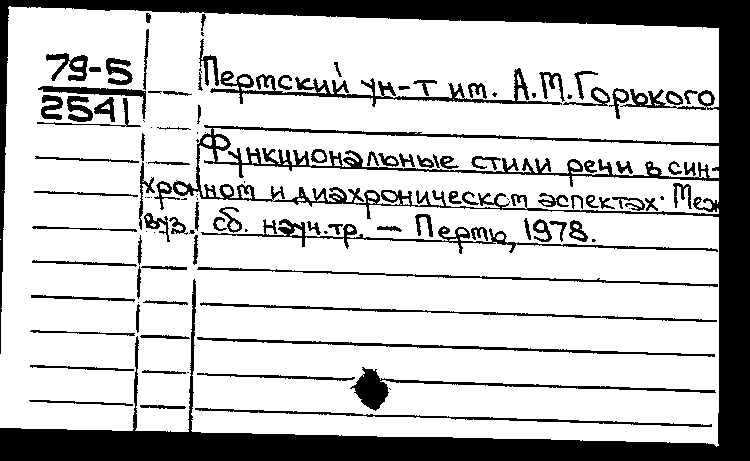 79-5
2541
Пермский ун-т им. А.М.Горького
Функциональные стили речи в син-
хронном и диахроническом аспектах: Меж
вуз. сб. науч.тр. — Пермь, 1978.